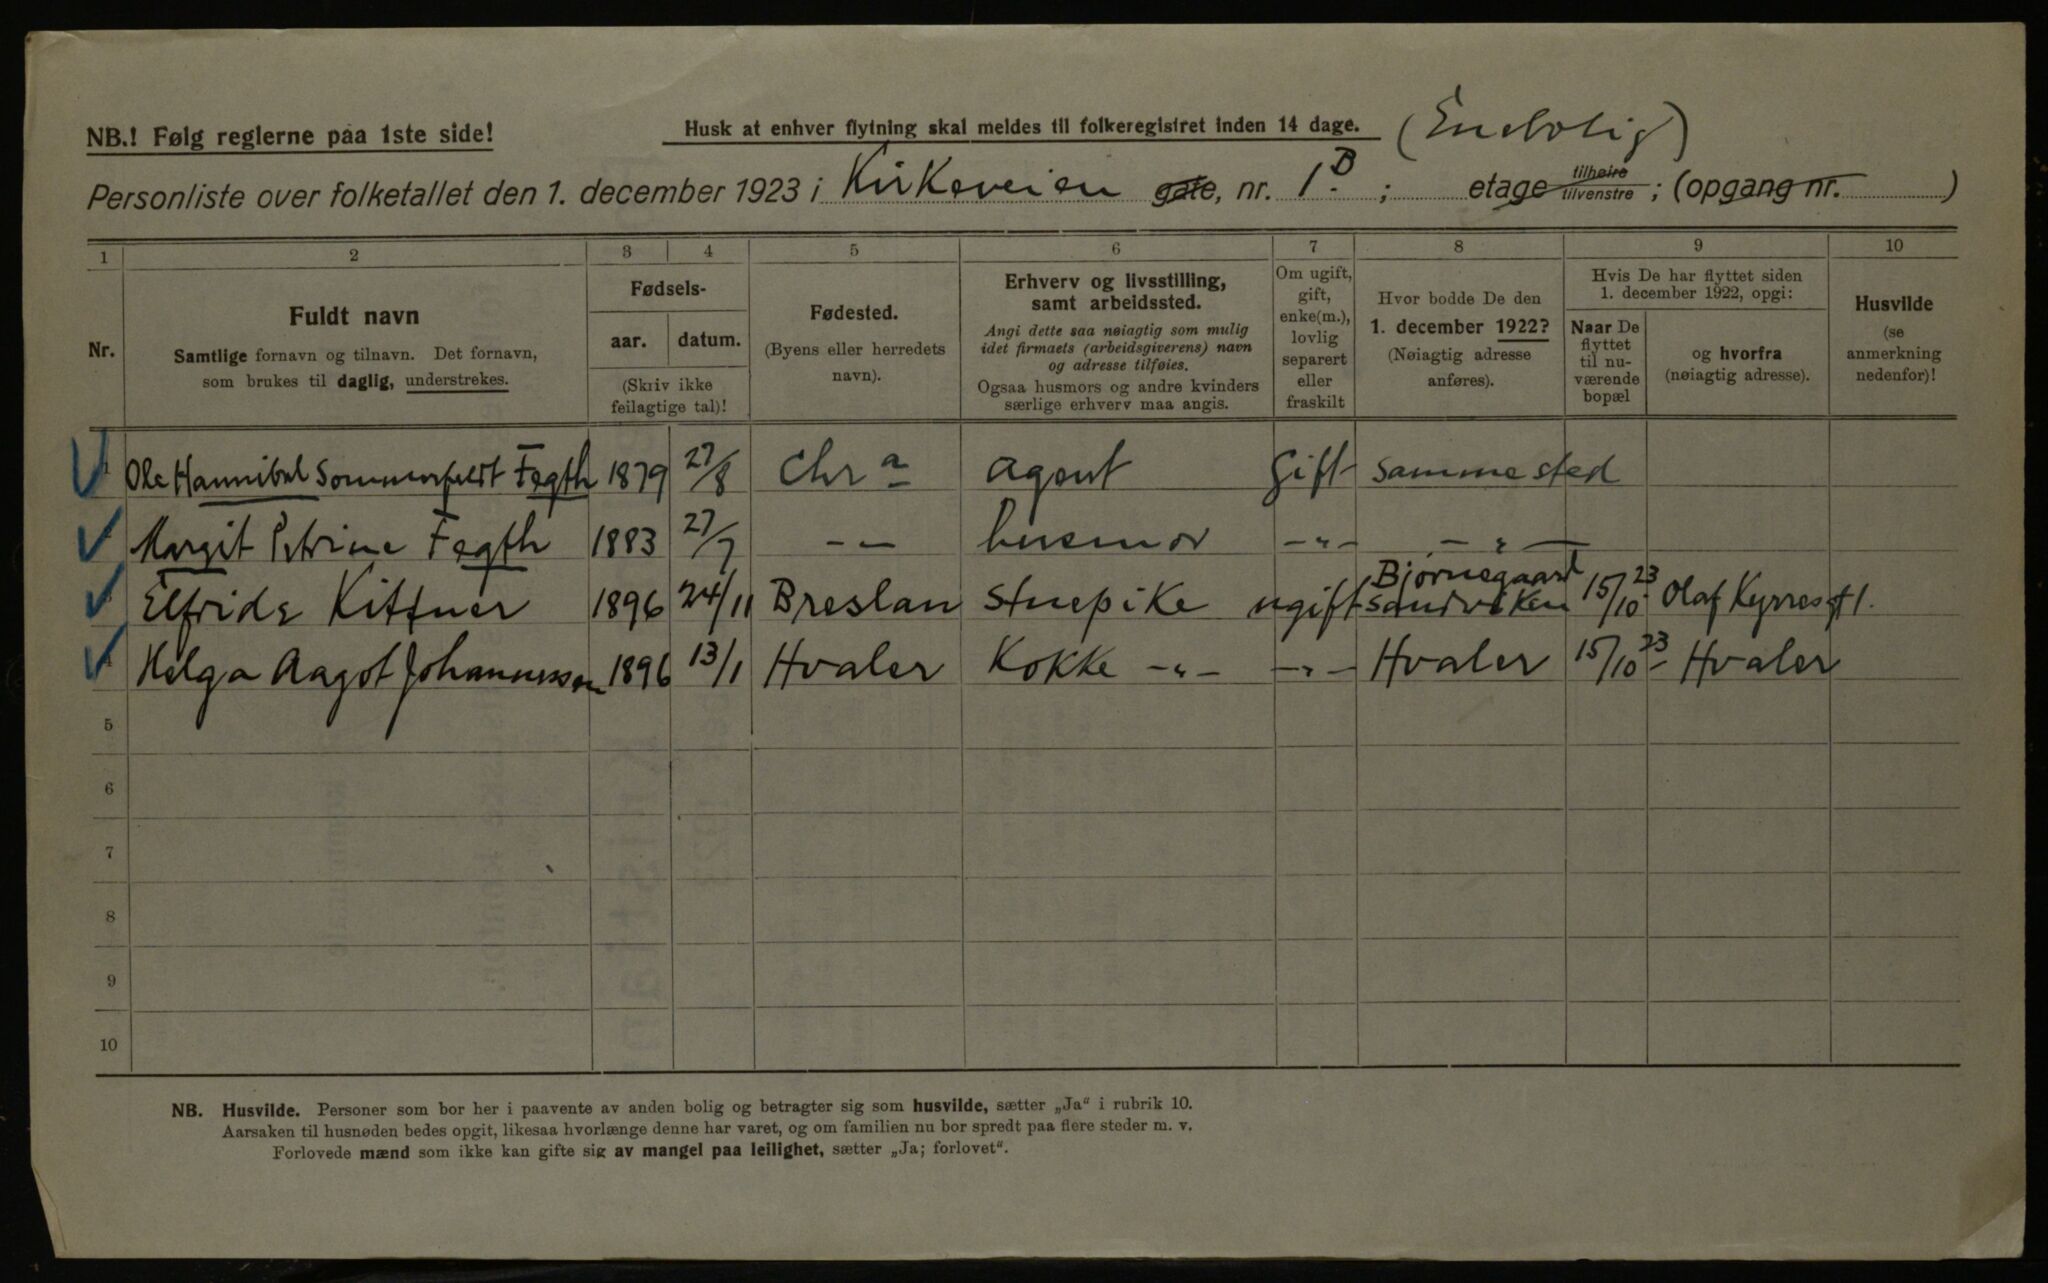 NB.! Følg reglerne paa 1ste side!
Husk at enhver flytning skal meldes til folkeregistret inden 14 dage. (Enebolig)
Personliste over folketallet den 1. december 1923 i Kirkeveien gate, nr. 1B.; etage tilhøire tilvenstre; (opgang nr. )
1 2 3 4 5 6 7 8 9 10
Nr.
Fuldt navn
Samtlige fornavn og tilnavn. Det fornavn,
som brukes til daglig, understrekes.
Fødsels-
aar. datum.
(Skriv ikke
feilagtige tal)!
Fødested.
(Byens eller herredets
navn).
Erhverv og livsstilling,
samt arbeidssted.
Angi dette saa nøiagtig som mulig
idet firmaets (arbeidsgiverens) navn
og adresse tilføies.
Ogsaa husmors og andre kvinders
særlige erhverv maa angis.
Om ugift,
gift,
enke(m.),
lovlig
separert
eller
fraskilt
Hvor bodde De den
1. december 1922?
(Nøiagtig adresse
anføres).
Hvis De har flyttet siden
1. december 1922, opgi:
Naar De
flyttet
til nu-
værende
bopæl
og hvorfra
(nøiagtig adresse).
Husvilde
(se
anmerkning
nedenfor)!
Ole Hannibal Sommerfeldt Fegth 1879 27/8 Chra agent Gift samme sted
Margit Petrine Fegth 1883 27/7 -- husmor -"- -"-
Elfride Kittner 1896 24/11 Breslau Stuepike ugift Bjørnegaard Sandviken 15/10 23 Olaf Kyrres pl.
Helga Aagot Johannessen 1896 13/1 Hvaler Kokke -"- -"- Hvaler 15/10 23 - Hvaler
5
6
7
8
9
10
NB. Husvilde. Personer som bor her i paavente av anden bolig og betragter sig som husvilde, sætter „Ja" i rubrik 10.
Aarsaken til husnøden bedes opgit, likesaa hvorlænge denne har varet, og om familien nu bor spredt paa flere steder m. v.
Forlovede mænd som ikke kan gifte sig av mangel paa leilighet, sætter „Ja; forlovet".